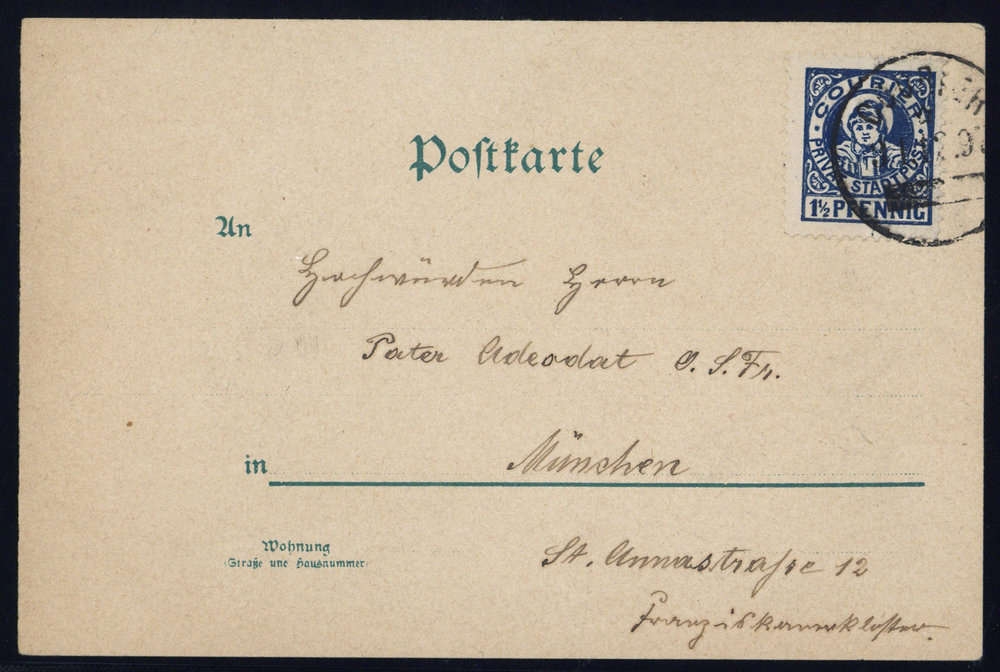 COURIER
PRIVAT STADTPOST
1½ PFENNIG
Poſtkarte
An
Hochwürden Herrn
Pater Adeodat O.S.Fr.
München
in
Wohnung
(Straße und Hausnummer)
St. Annastraſse 12
Franziskanerkloſter.